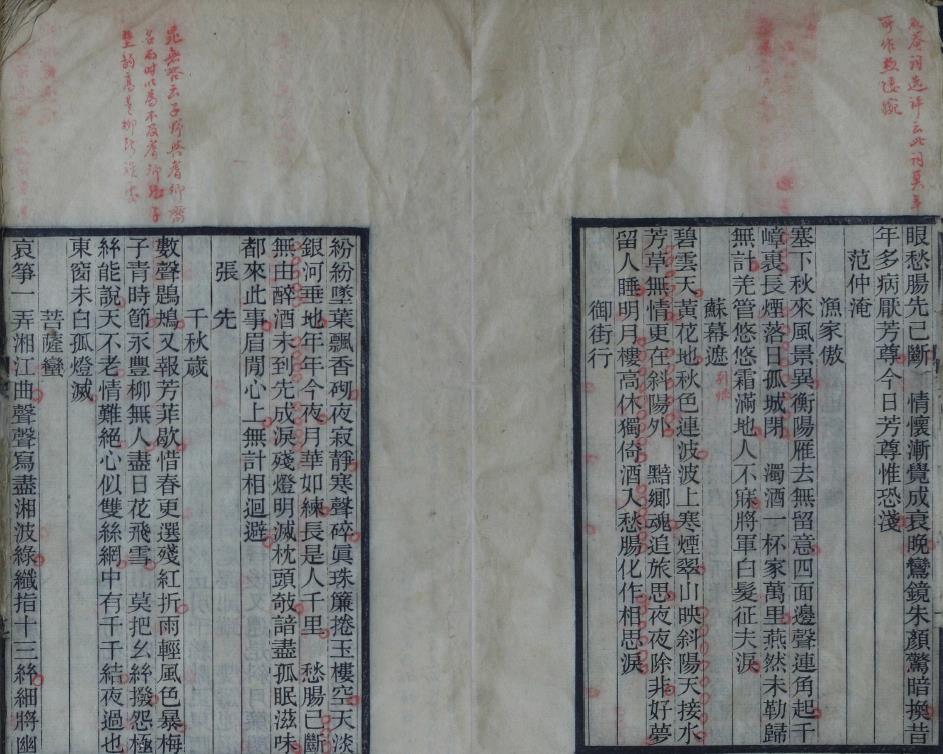 菴詞选评云此词莫年
所作
眼愁腸先已斷　情懷漸覺成衰晚鸞鏡朱顏驚暗換昔
年多病厭芳尊今日芳尊惟恐淺
范仲淹
漁家傲
塞下秋來風景異衡陽雁去無留意四面邊聲連角起千
嶂裏長煙落日孤城閉　濁酒一杯家萬里燕然未勒歸
無計羌管悠悠霜滿地人不寐將軍白髮征夫淚
蘇幕遮
碧雲天黃花地秋色連波波上寒煙翠山映斜陽天接水
芳草無情更在斜陽外　黯鄉魂追旅思夜夜除非好夢
留人睡明月樓高休獨倚酒入愁腸化作相思淚
御街行
晁無咎云子野與耆卿齊
名而时以為不及耆卿子
野韵高是柳所
紛紛墜葉飄香砌夜寂靜寒聲碎眞珠簾捲玉樓空天淡
銀河垂地年年今夜月華如練長是人千里　愁腸已斷
無由醉酒未到先成淚殘燈明滅枕頭敧諳盡孤眠滋味
都來此事眉閒心上無計相迴避
張　先
千秋歲
數聲鶗鴂又報芳菲歇惜春更選殘紅折雨輕風色暴梅
子青時節永豐柳無人盡日花飛雪　莫把幺絲撥怨極
絲能說天不老情難絕心似雙絲網中有千千結夜過也
東窗未白孤燈滅
菩薩蠻
哀箏一弄湘江曲聲聲寫盡湘波綠纖指十三絲細將幽